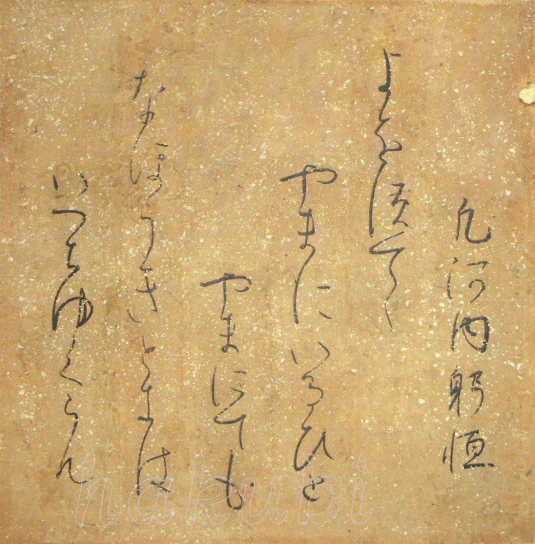 凡河内躬恒
よをすてゝ
やまにいるひと
やまにても
なほうきときは
いづちゆくらん
hakubi